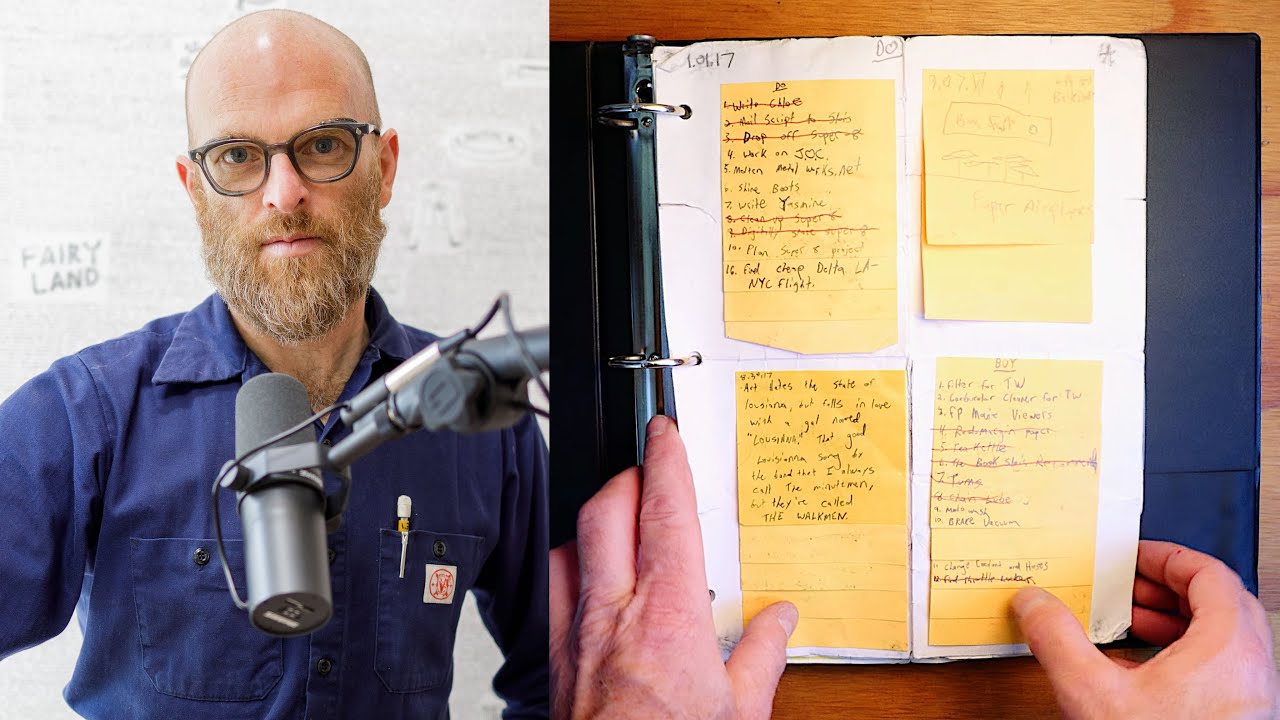 FAIRY
LAND
1.01.17
DO
DO
1. Write Chloe
2. Mail Script to
3. Drop off Super 8
4. Work on JOC.
5. Molten Metal Works.net
6. Shine Boots
7. Write Yasmine
8. Clean up Super 8
9. Digitally state super 8
10. Plan Super 8 project
16. Find Cheap Delta LA-
NYC flight.
Paper Airplanes
Art hates the state of
lousianna, but falls in love
with a gal named
"LOUSIANNA." That good
Louisianna song by
the band that I always
call The minutemen,
but they're called
THE WALKMEN.
BUY
1. Filter for TW
2. Carburetor Cleaner for TW
3. FP Movie Viewers
4. Red Margin Paper
5. Tea Kettle
6. The Book
7.
8. Chain Lube
9.
10. BRAKE Vacuum
11. Change Coolant and Hoses
12. Find Throttle